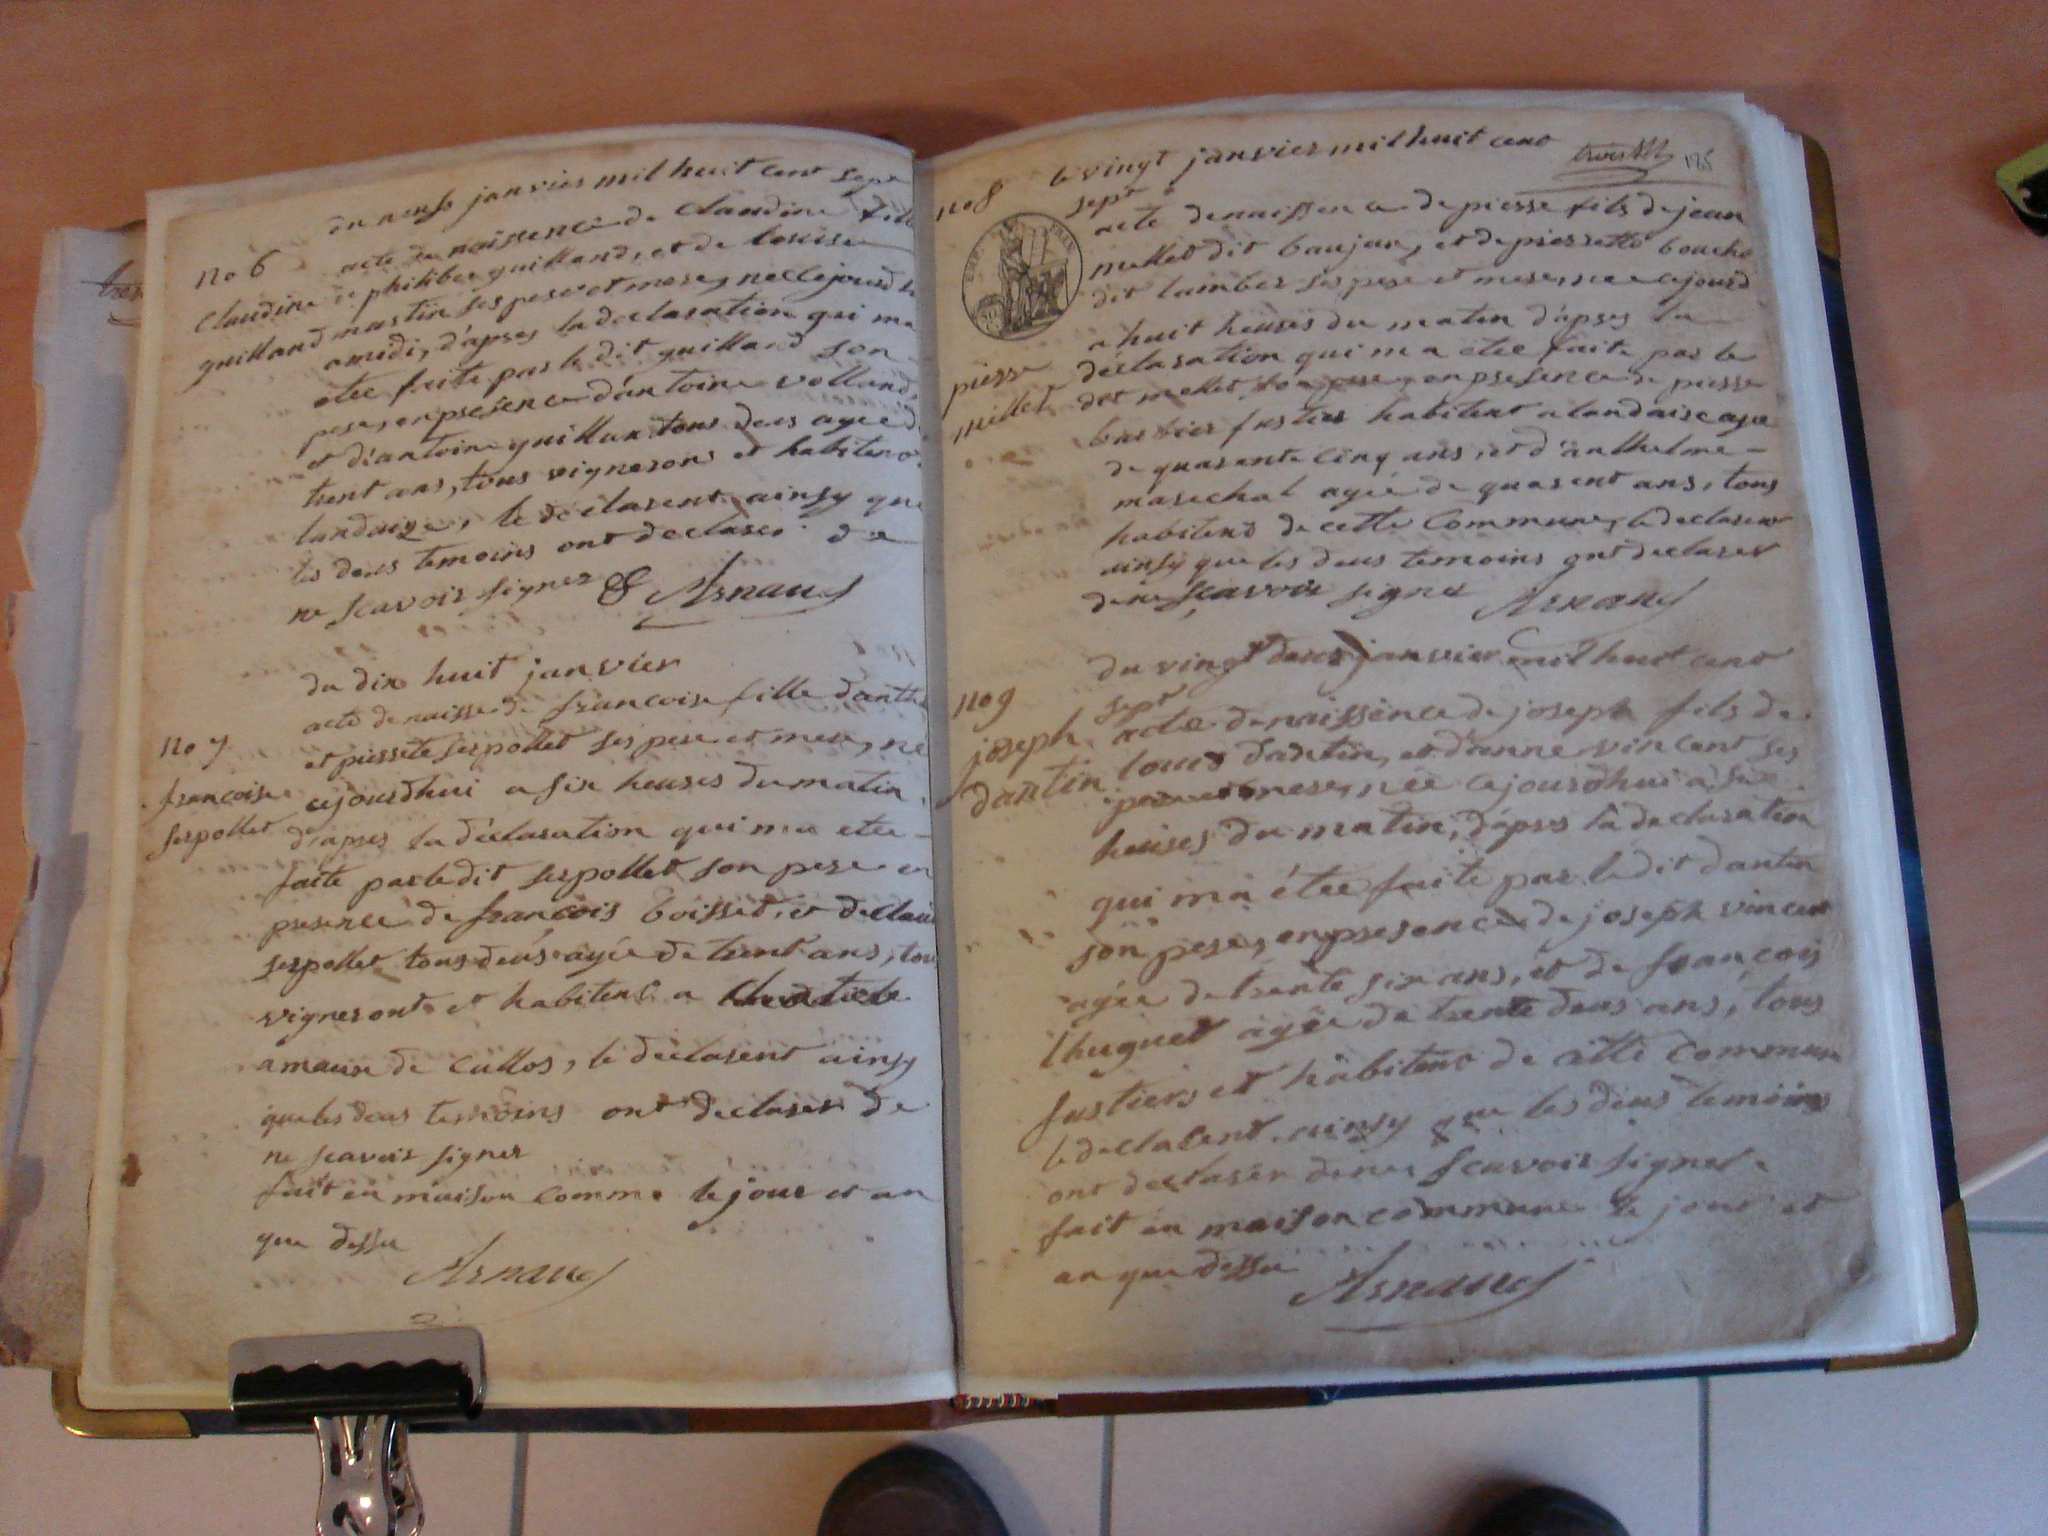 du neuf janvier mil huit cent sept
no 6
acte de naissence de claudine fille
claudine
de philiber guilland, et de louise
guilland
martin ses pere et mere, nee cejourd
a medi, d'apres la declaration qui ma
etee faite par le dit guilland son
pere, en presence d'antoine volland,
et d'antoine guillan tous deus agee d
trent ans, tous vignerons et habitent
landaize, le declarent ainsy que
les deus temoins ont declarer de
ne scavoir signer & Arnaud
du dix huit janvier
acte de naisse de francoise fille danth
no 7
et pierrete serpollet ses pere et mere, ne
francoise
cejourdhui a six heures du matin
serpollet
d'apres la declaration qui ma etee
faite par le dit serpollet son pere en
presence de françois boisset, et de claud
serpollet tous deus agée de trent ans, tou
vigneront et habitent a
amaun de cullos, le declarent ainsy
que les deus temoins ont declarer de
ne scavoir signer
fait en maison comm. le jour et an
que dessu
Arnaud
no 8
le vingt janvier mil huit cent
175
sept
acte de naissence de pierre fils de jean
mellet dit baujan, et de pierrette bouche
dit lamber ses pere et mere, nee cejourd
a huit heures du matin d'apres la
pierre
declaration qui m a etee faite par le
mellet
dit mellet son pere, en presence de pierre
barbier fustier habitent a landaise agee
de quarente cinq ans, et d'anthelme
marechal agée de quarent ans, tous
habitent de cette commune, le declarent
ainsy que les deus temoins ont declarer
de ne scavoir signer Arnaud
du vingt deus janvier mil huit cent
no 9
sept
joseph
acte de naissence de joseph fils de
dantin
louis dantin, et d'anne vincent ses
pere et mere, nee cejourdhui a six
heures du matin, d'apres la declaration
qui ma étee faite par le dit dantin
son pere, en presence de joseph vincent
agee de trente six ans, et de françois
lhuguet agée de trente deus ans, tous
fustiers et habitent de cette commune
le declarent ainsy que les deus temoins
ont declarer de ne scavoir signer
fait en maison commune le jour et
an que dessu
Arnaud